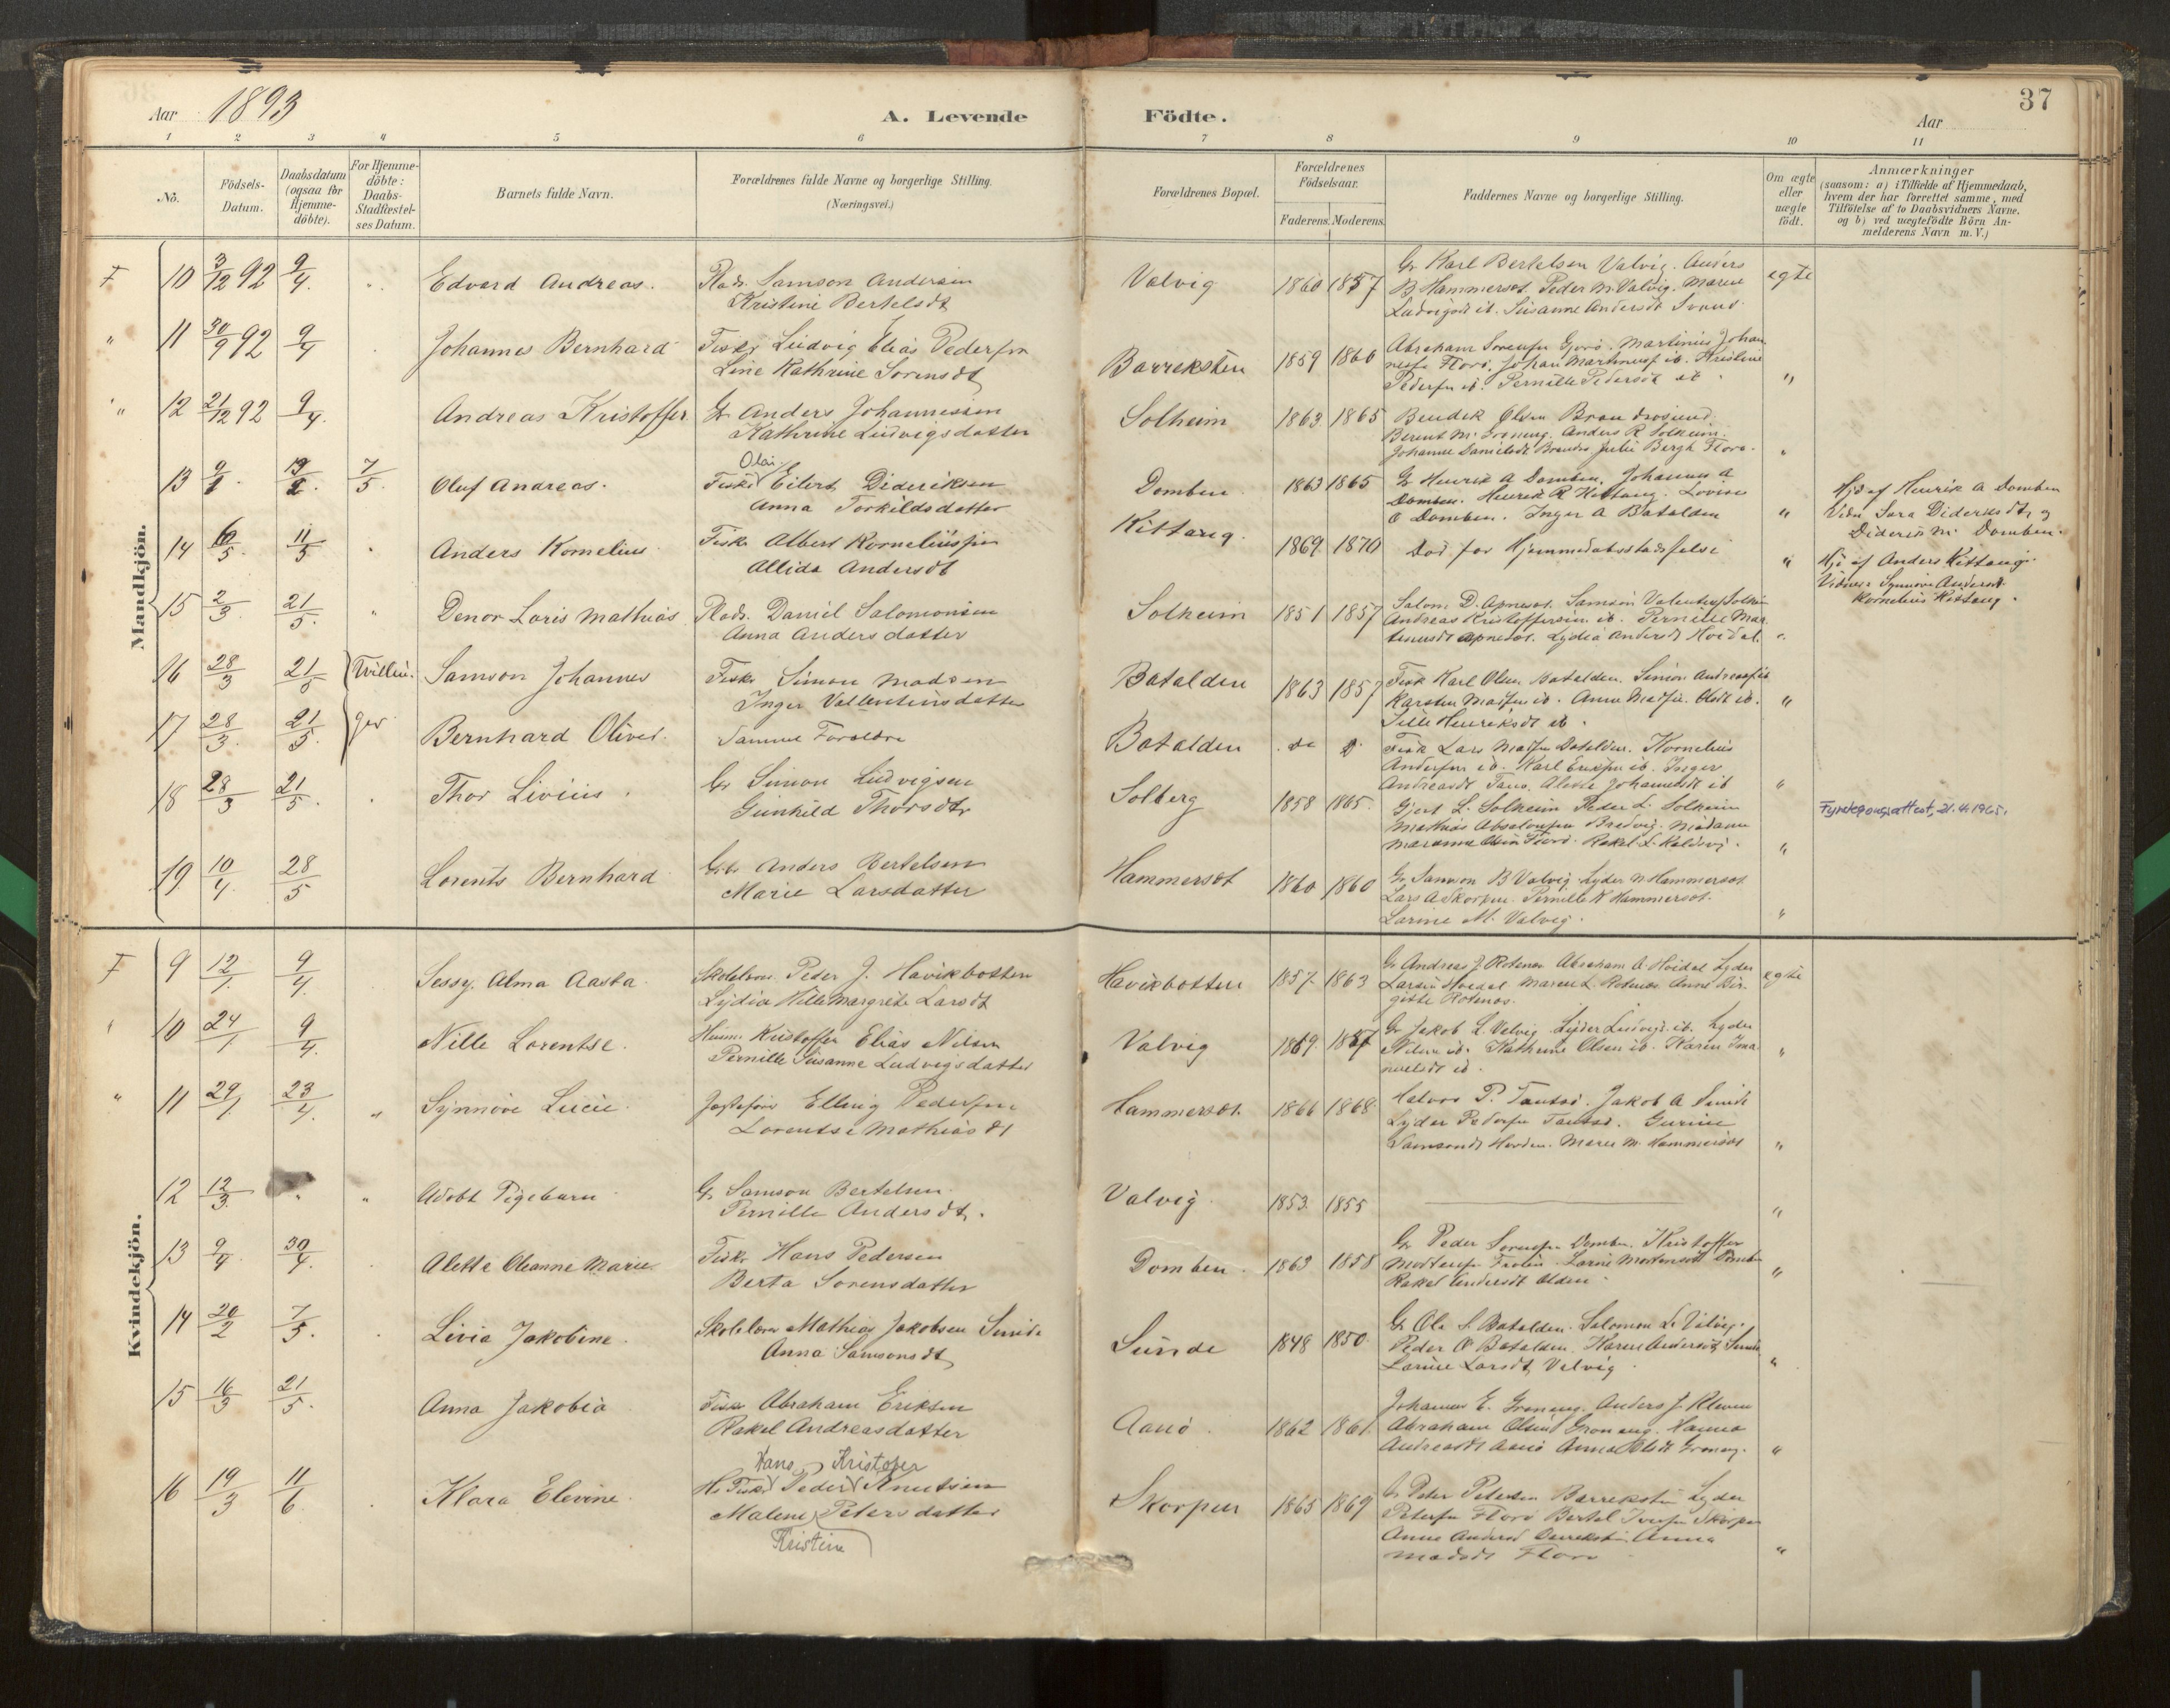 Aar 1893
A. Levende
Födte.
37
Aar
1 2 3 4 5 6 7 8 9 10 11
No.
Födsels-Datum.
Daabsdatum (ogsaa for Hjemme-döbte).
For Hjemme-döbte: Daabs-Stadfæstel-ses Datum.
Barnets fulde Navn.
Forældrenes fulde Navne og borgerlige Stilling.
(Næringsvei.)
Forældrenes Bopæl.
Forældrenes Födselsaar.
Faderens. Moderens.
Faddernes Navne og borgerlige Stilling.
Om ægte eller uægte födt.
Anmærkninger
(saasom: a) i Tilfælde af Hjemmedaab,
hvem der har forrettet samme, med
Tilföielse af to Daabsvidners Navne,
og b) ved uægtefödte Börn An-
melderens Navn m. V.)
Mandkjön.
F 10 3/12 92 9/4 Edvard Andreas. Plads. Samson Andersen
Kristine Bertelsdt
Valvig 1860 1857
Gr Karl Bertelsen Valvig. Anders
B Hammerset Peder M. Valvig. Maren
Ludvigsdt ib. Susanne Andersdt
egte
" 11 30/9 92 9/4 Johannes Bernhard Fisker Ludvig Elias Pedersen
Line Kathrine Sorensdt
Barreksten 1859 1866
Abraham Sorensen Martinius Johan
nesen Floro. Johan ib. Kristine
Pedersen ib. Pernille Pedersdt ib
"
" 12 21/12 92 9/4 Andreas Kristoffer Gr Anders Johannessen
Kathrine Ludvigsdatter
Solheim 1863 1865
Bendik Olsen
Berent M. Anders R Solheim.
Johanne Danielsdt Julie Bergh Floro.
"
13 7/5 Oluf Andreas. Fisker Olai Eilert Dideriksen
Anna Torkildsdatter
Domben 1863 1865
Gr Henrik A Domben. Johannes A
Domben. Henrik R Kittang. Lovise
O Domben. Inger A Batalden
"
Hjd af Henrik A Domben
Vidn Sara Dideriksdt og
Diderik M. Domben.
14 11/5 Anders Kornelius Fisker Albert Korneliussen
Allida Andersdt
Kittang. 1869 1870
Död for Hjemmedaabsstadfestelse
"
Hjd af Anders Kittang.
Vidner Synnove Andersdt.
Kornelius Kittang.
15 2/3 21/5 " Denor Loris Mathias Plads. Daniel Salomonsen
Anna Andersdatter
Solheim 1851 1857
Salom. D. Samson Solheim
Andreas Kristoffersen ib. Pernille Mar
tinusdt Lydia Andersdt Hovdal
"
16 28/3 21/5 Tvillin. Samson Johannes Fisker Simon Madsen
Inger Vallentinsdatter
Batalden 1863 1857
Fisk Karl Olsen Batalden. Simon Andreassen ib
Karsten Madsen ib. Anne Olsdt ib.
Sille Henriksdt ib.
"
17 28/3 21/5 ger Bernhard Oliver. Samme Foreldre
Batalden do d.
Fisk Lars Madsen Batalden. Kornelius
Andersen ib. Karl ib. Inger
Andreasdt Alette Johannesdt ib
"
18 28/3 21/5 Thor Livius. Gr Simon Ludvigsen
Gunhild Thorsdtr
Solberg 1858 1865
Gjert L. Solheim Peder L. Solheim
Mathias Absalonsen Bredvig.
Rakel L.
"
Fyrdegangsattest, 21.4.1965.
19 10/4 28/5 Lorents Bernhard Gr Anders Bertelsen
Marie Larsdatter
Hammerset 1860 1860
Gr Samson B Valvig. Lyder N Hammerset
Lars A Skorpen. Pernille K Hammerset.
Larine M. Valvig.
"
Kvindekjön.
F 9 12/1 9/4 Jessy. Alma Aasta. Skolelærer Peder J. Havikbotten
Lydia Hille Margrete Larsdt
Havikbotten 1857 1863
Gr Andreas J Rotenes Abraham A Hovdal Lyder
Larsen Hovdal Maren L. Rotenes. Anne Bir-
gitte Rotenes.
egte
" 10 24/1 9/4 Nille Lorentse. Husm. Kristoffer Elias Nilsen
Pernille Susanne Ludvigsdatter
Valvig 1869 1857
Gr Jakob L. Valvig Lyder Ludvigs. ib. Lyder
Nilsen ib. Kathrine Olsen ib. Karen Ima-
nuelsdt ib.
"
" 11 29/1 23/4 " Synnöve Lucie. Elling Pedersen
Lorentse Mathiasdt
Hammerset. 1866 1868
Halvor P. Tansø. Jakob A Sunde
Lyder Pedersen Tansø. Gurine
Samsonsdt Maren M. Hammerset
"
12 12/3 " " Udöbt Pigebarn Gr Samson Bertelsen
Pernille Andersdt.
Valvig 1853 1855
"
13 9/4 30/4 Alette Oleanne Marie Fisker Hans Pedersen
Berta Sorensdatter
Domben. 1863 1858
Gr Peder Sorensen Domben. Kristoffer
Mortensen Larine Mortensdt Domben
Rakel Andersdt Alden.
"
14 20/2 7/5 Livia Jakobine. Skolelærer Mathias Jakobsen Sunde
Anna Samsonsdt
Sunde 1848 1850
Gr Ole S. Batalden. Salomon L. Valvig.
Peder O Batalden. Karen Andersdt Sunde
Larine Larsdt Valvig.
"
15 16/3 21/5 Anna Jakobia Fisker Abraham Eriksen
Rakel Andreasdatter
Aanö. 1862 1861
Johannes E. Anders J.
Abraham Olsen Hanna
Andreasdt Aanö Anna Olsdt
"
16 19/3 11/6 Klara Elevine. Hans Kristofer
H. Fisker Peder Knutsen
Malene Petersdatter
Kristine
Skorpen 1865 1869
Gr Peter Petersen Barreksten Lyder
Petersen Florö Bertel Skorpen
Anne Andersd Barreksten Anna
Madsdt Florö
"